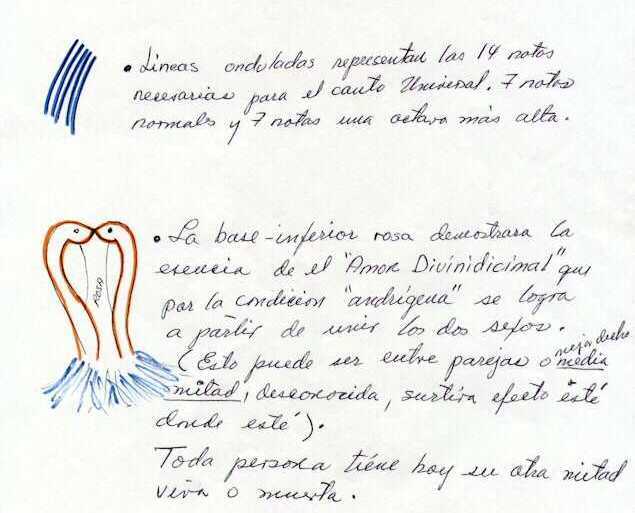 • Líneas onduladas representan las 14 notas
necesarias para el canto Universal. 7 notas
normales y 7 notas una octava más alta.
ROSA
• La base-inferior rosa demostrara la
esencia de el "Amor Divinidicimal" que
por la condicion "andrígena" se logra
a partir de unir los dos sexos.
(Esto puede ser entre parejas o mejor dicho media
mitad, desconocida, surtira efecto esté
donde esté).
Toda persona tiene hoy su otra mitad
viva o muerta.